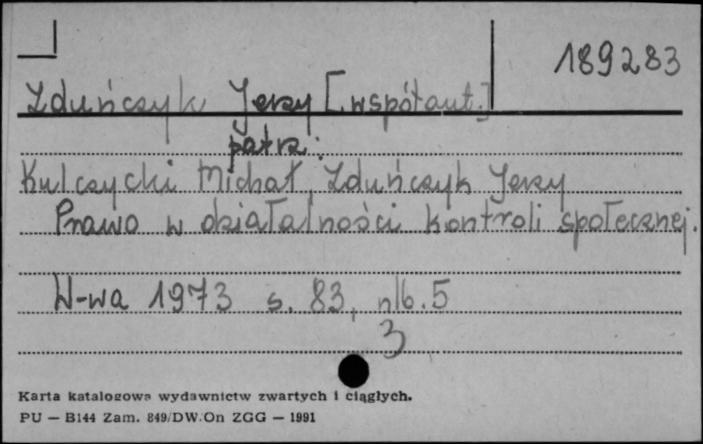 189283
Zduńczyk Jerzy [współaut.]
patrz:
Kulczycki Michał, Zduńczyk Jerzy
Prawo w działalności kontroli społecznej.
W-wa 1973 s. 83, nlb. 5
3
Karta katalogowa wydawnictw zwartych i ciągłych.
PU — B144 Zam. 849/DW.On ZGG — 1991